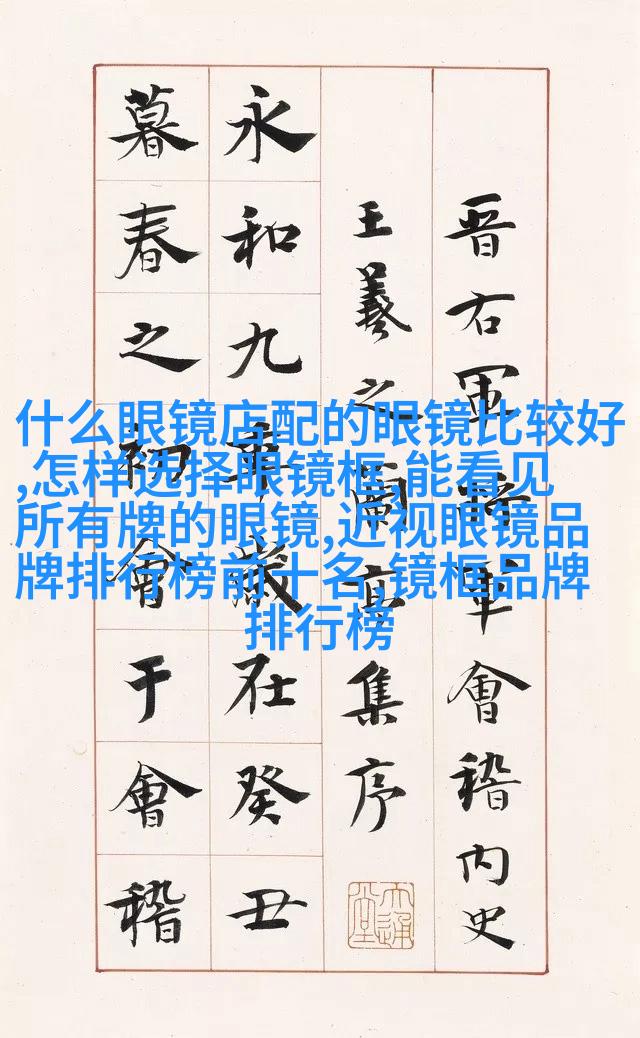 晋右軍將軍會稽内史
王羲之蘭亭集序
永和九年歲在癸丑
暮春之初會于會稽
什么眼镜店配的眼镜比较好
,怎样选择眼镜框,能看见
所有牌的眼镜,近视眼镜品
牌排行榜前十名,镜框品牌
排行榜